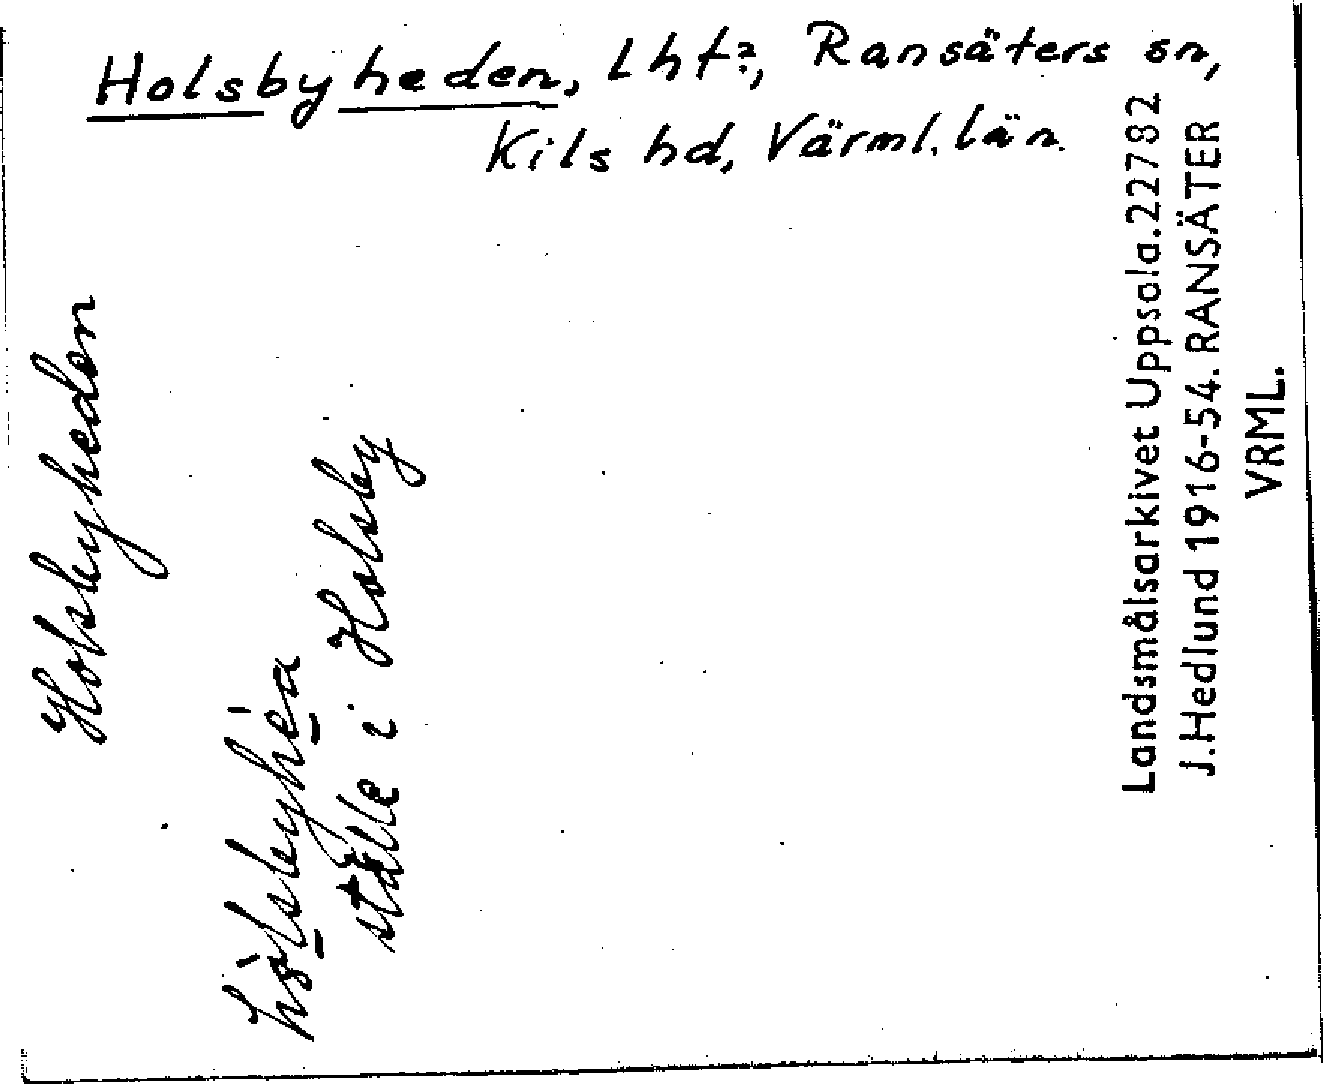 Holsbyheden, Lht?, Ransäters sn,
Kils hd, Värml. län.
Holsbyheden
ställe i Holsby
Landsmålsarkivet Uppsala.22782
J.Hedlund 1916-54. RANSÄTER
VRML.